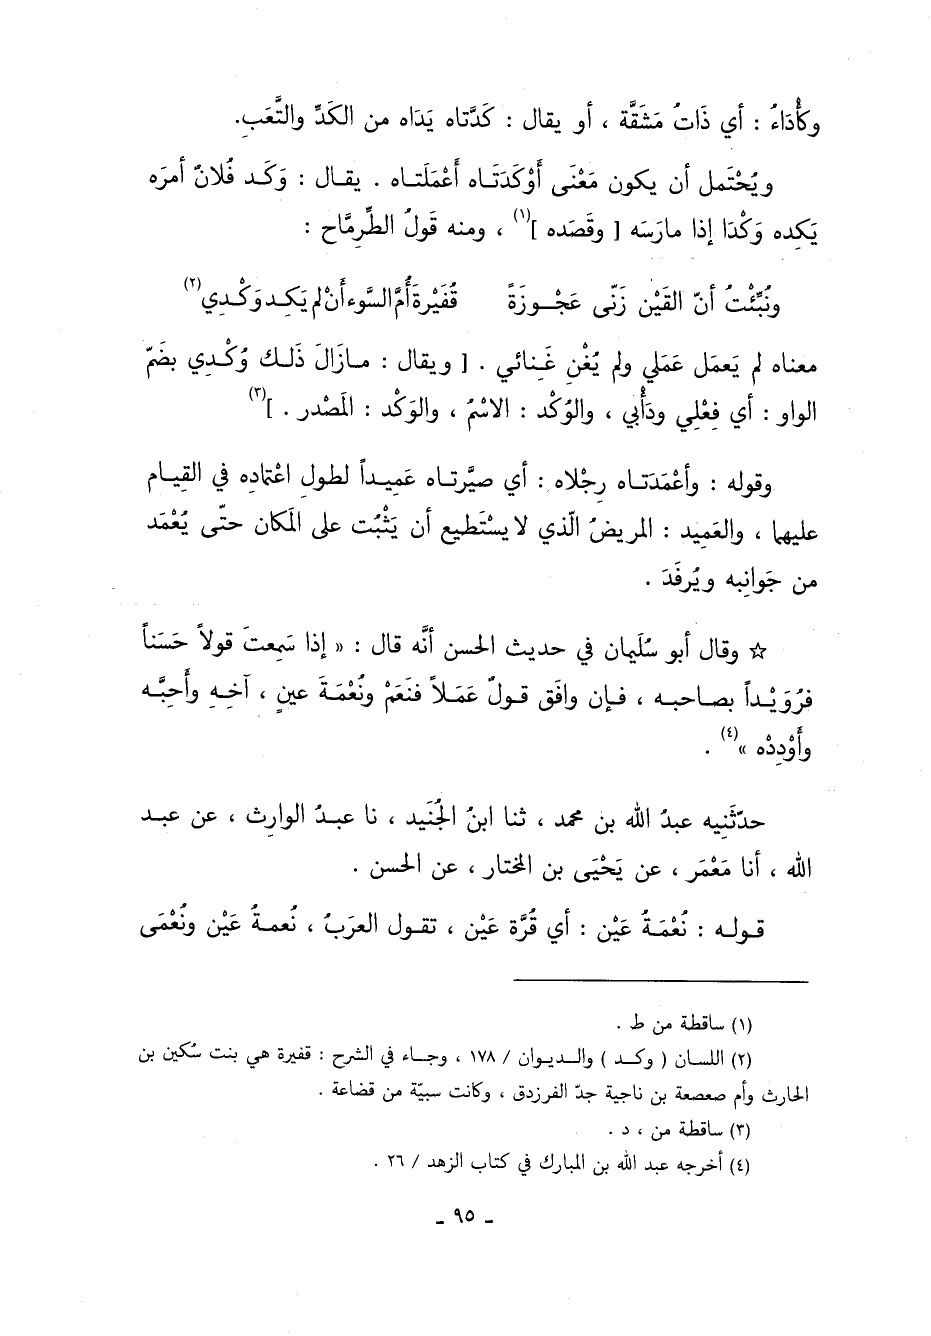 وكَأْدَاءُ : أي ذَاتُ مَشَقَّة ، أو يقال : كَدَّتاه يَدَاه من الكَدِّ والتَّعَبِ.
ويُحْتَمل أن يكون مَعْنَى أَوْكَدَتَـاه أَعْمَلَتـاه . يقـال : وَكَـد فُلانٌ أمرَه
يَكِده وَكْدَا إذا مارَسَه [ وقَصَده ](١) ، ومنه قَولُ الطِّرِمَّاح :
ونُبِّئْتُ أنّ القَيْن زَنّى عَجْـوزَةً قُفَيْرَةَ أُمَّ السَّوءِ أَنْ لم يَكِـد وَكْـدِي(٢)
معناه لم يَعمَل عَمَلي ولم يُغْنِ غَـنائي . [ ويقال : مـازَالَ ذَلـك وُكْـدي بضَمّ
الواو : أي فِعْلي ودَأْبي ، والوُكْد : الاسْمُ ، والوَكْد : المَصْدر . ](٣)
وقوله : وأعْمَدَتـاه رِجْلاه : أي صيَّرتـاه عَمِيـداً لطولِ اعْتمادِه في القِيـام
عليهما ، والعَمِيد : المريضُ الّذي لا يسْتَطيع أن يَثْبُت على المَكان حتّى يُعْمَد
من جَوانِبه ويُرفَدَ .
☆ وقال أبو سُلَيمان في حديث الحسن أنَّه قال : « إذا سَمِعتَ قولاً حَسَناً
فرُوَيْـداً بصـاحبـه ، فـإن وافَق قـولٌ عَمَـلاً فنَعَمْ ونُعْمَـةَ عينٍ ، آخِـهِ وأَحِبَّـه
وأَوْدِدْه »(٤) .
حدّثَنِيه عبدُ الله بن محمد ، ثنا ابنُ الجُنَيد ، نا عبـدُ الوارث ، عن عبـد
الله ، أنا مَعْمَر ، عن يَحْيَى بن المختار ، عن الحسن .
قـولـه : نُعْمَـةُ عَيْن : أي قُرَّة عَيْن ، تقـول العرَبُ ، نُعمـةُ عَيْن ونُعْمَى
(١) ساقطة من ط .
(٢) اللسـان ( وكـد ) والـديـوان / ١٧٨ ، وجـاء في الشرح : قفيرة هي بنت سُكين بن
الحارث وأم صعصعة بن ناجية جدّ الفرزدق ، وكانت سبيّة من قضاعة .
(٣) ساقطة من ، د .
(٤) أخرجه عبد الله بن المبارك في كتاب الزهد / ٢٦ .
ـ ٩٥ ـ